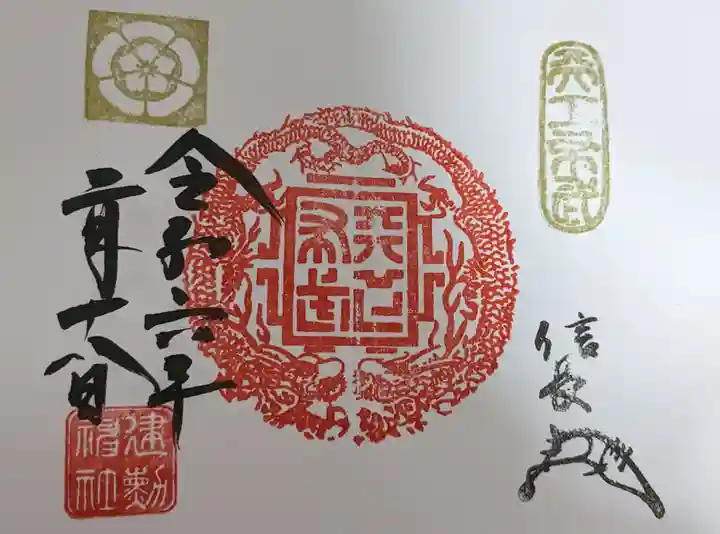 天下布武
信長
天下布武
令和六年
二月十八日
建勲神社